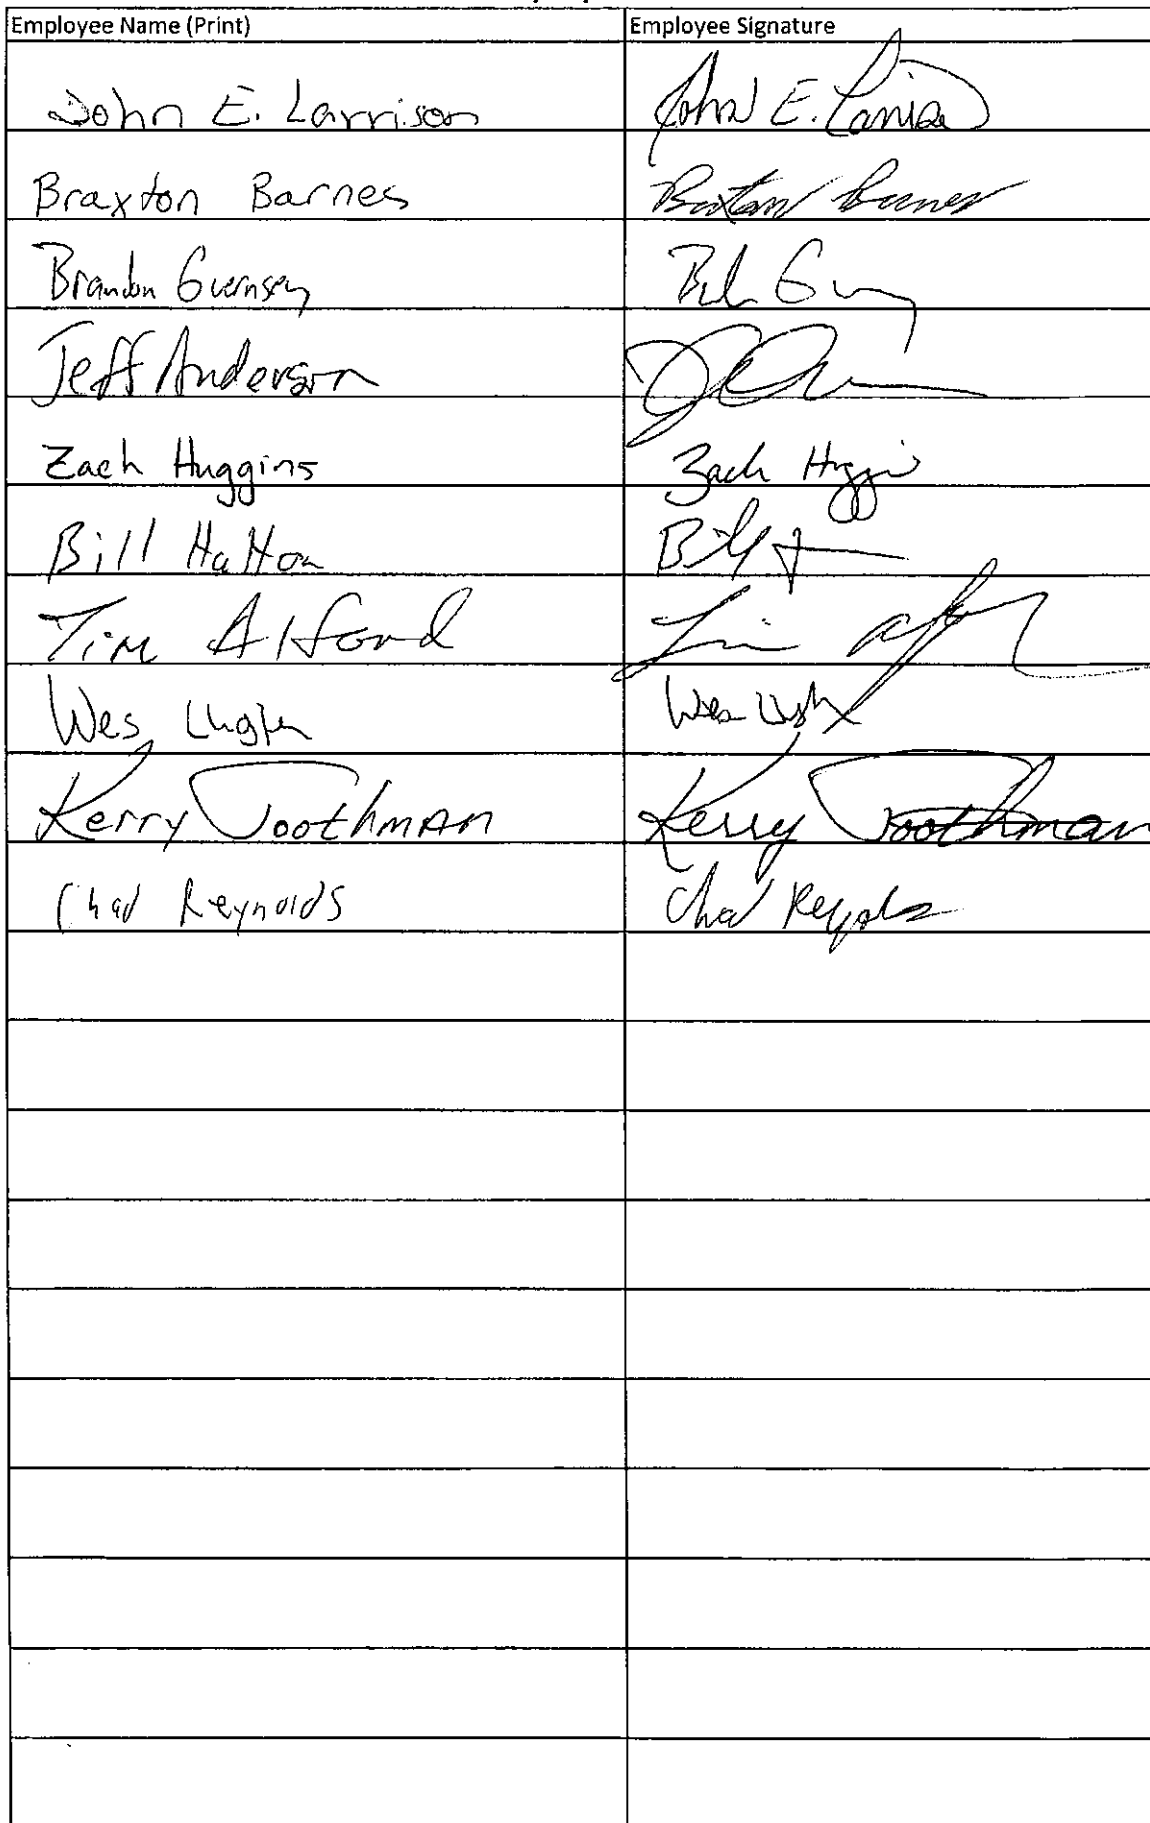 Employee Name (Print) Employee Signature
John E. Larrison John E. Larrison
Braxton Barnes Braxton Barnes
Brandon Guernsey
Jeff Anderson
Zach Huggins Zach Huggins
Bill Hatton Bill
Tim Alford Tim Alford
Wes Wes
Kerry Toothman Kerry Toothman
Chad Reynolds Chad Reynolds